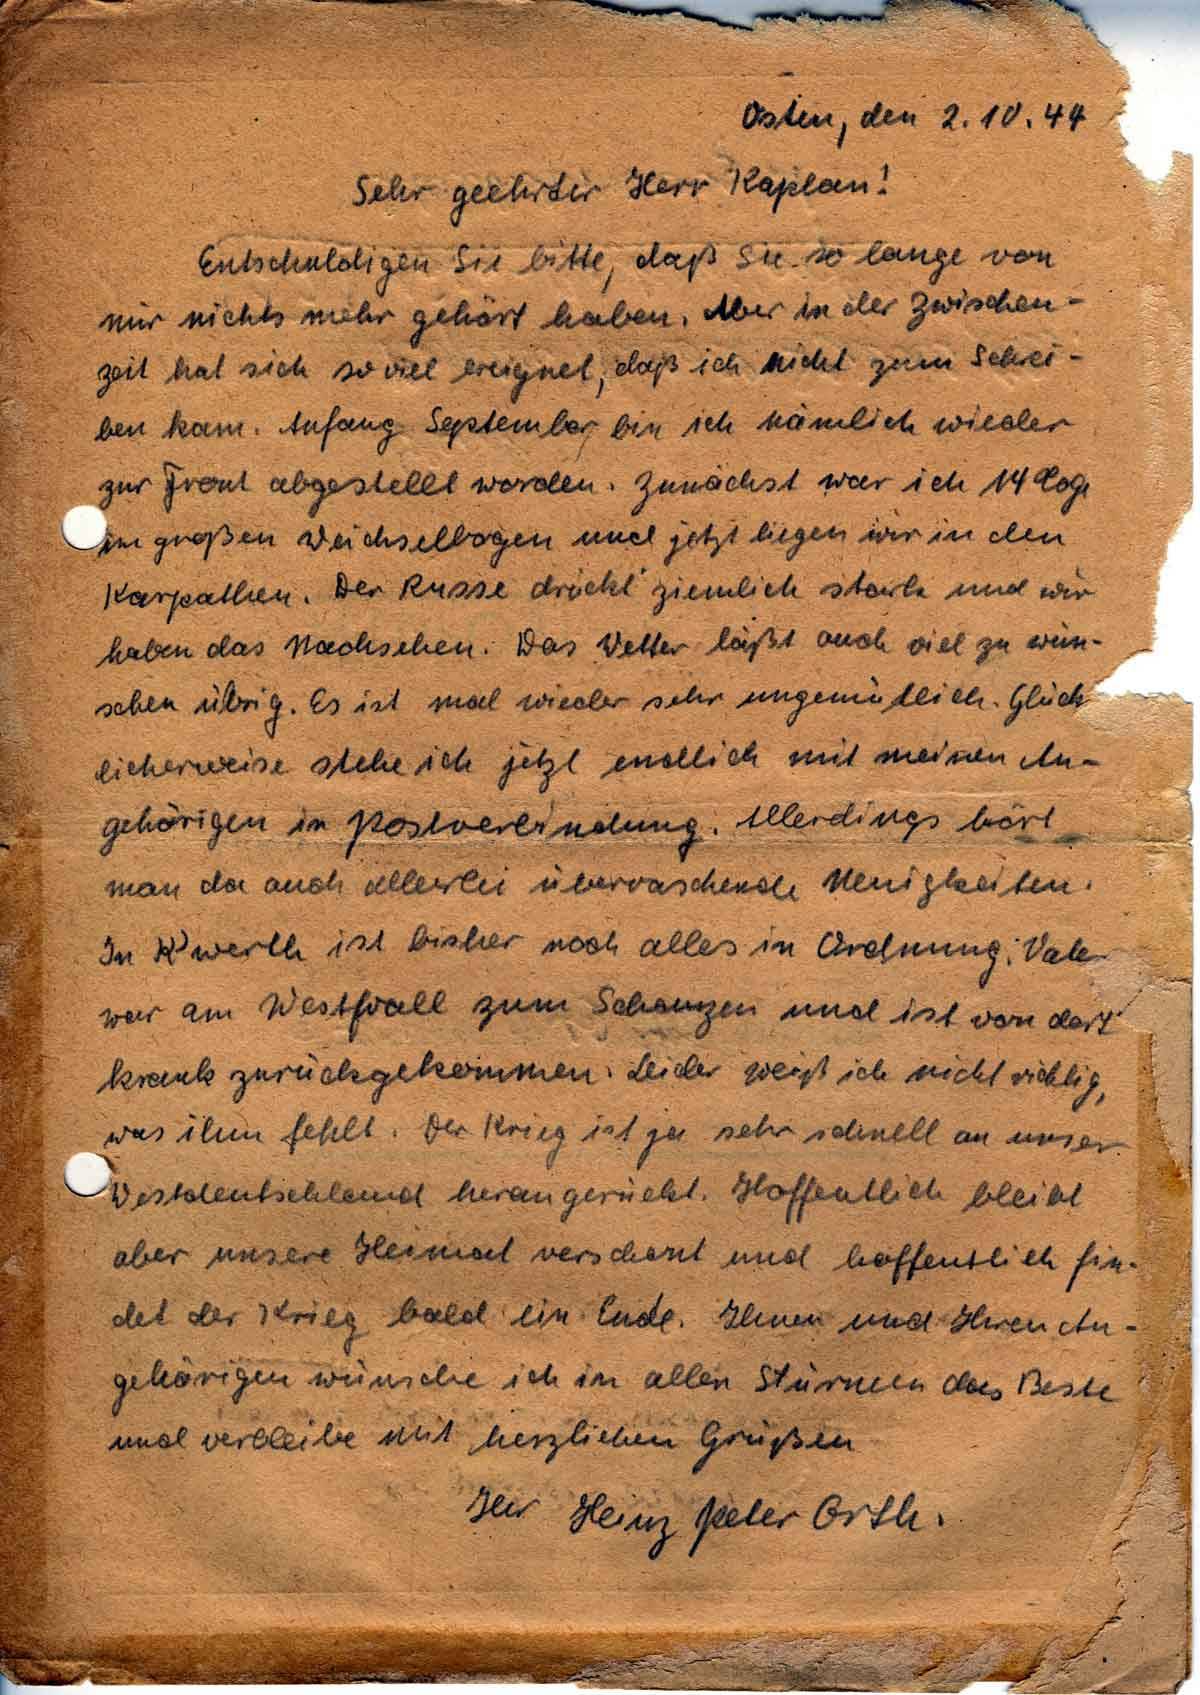 Osten, den 2.10.44
Sehr geehrter Herr Kaplan!
Entschuldigen Sie bitte, daß Sie so lange von
mir nichts mehr gehört haben. Aber in der Zwischen-
zeit hat sich so viel ereignet, daß ich nicht zum Schrei-
ben kam. Anfang September bin ich nämlich wieder
zur Front abgestellt worden. Zunächst war ich 14 Tage
im großen Weichselbogen und jetzt liegen wir in den
Karpathen. Der Russe drückt ziemlich stark und wir
haben das Nachsehen. Das Wetter läßt auch viel zu wün-
schen übrig. Es ist mal wieder sehr ungemütlich. Glück
licherweise stehe ich jetzt endlich mit meinen An-
gehörigen in Postverbindung. Allerdings hört
man da auch allerlei überraschende Neuigkeiten.
In K'werth ist bisher noch alles in Ordnung. Vater
war am Westwall zum Schanzen und ist von dort
krank zurückgekommen. Leider weiß ich nicht richtig,
was ihm fehlt. Der Krieg ist ja sehr schnell an unser
Westdeutschland herangerückt. Hoffentlich bleibt
aber unsere Heimat verschont und hoffentlich fin-
det der Krieg bald ein Ende. Ihnen und Ihren An-
gehörigen wünsche ich in allen Stürmen das Beste
und verbleibe mit herzlichen Grüßen
Ihr Heinz Peter Orth.